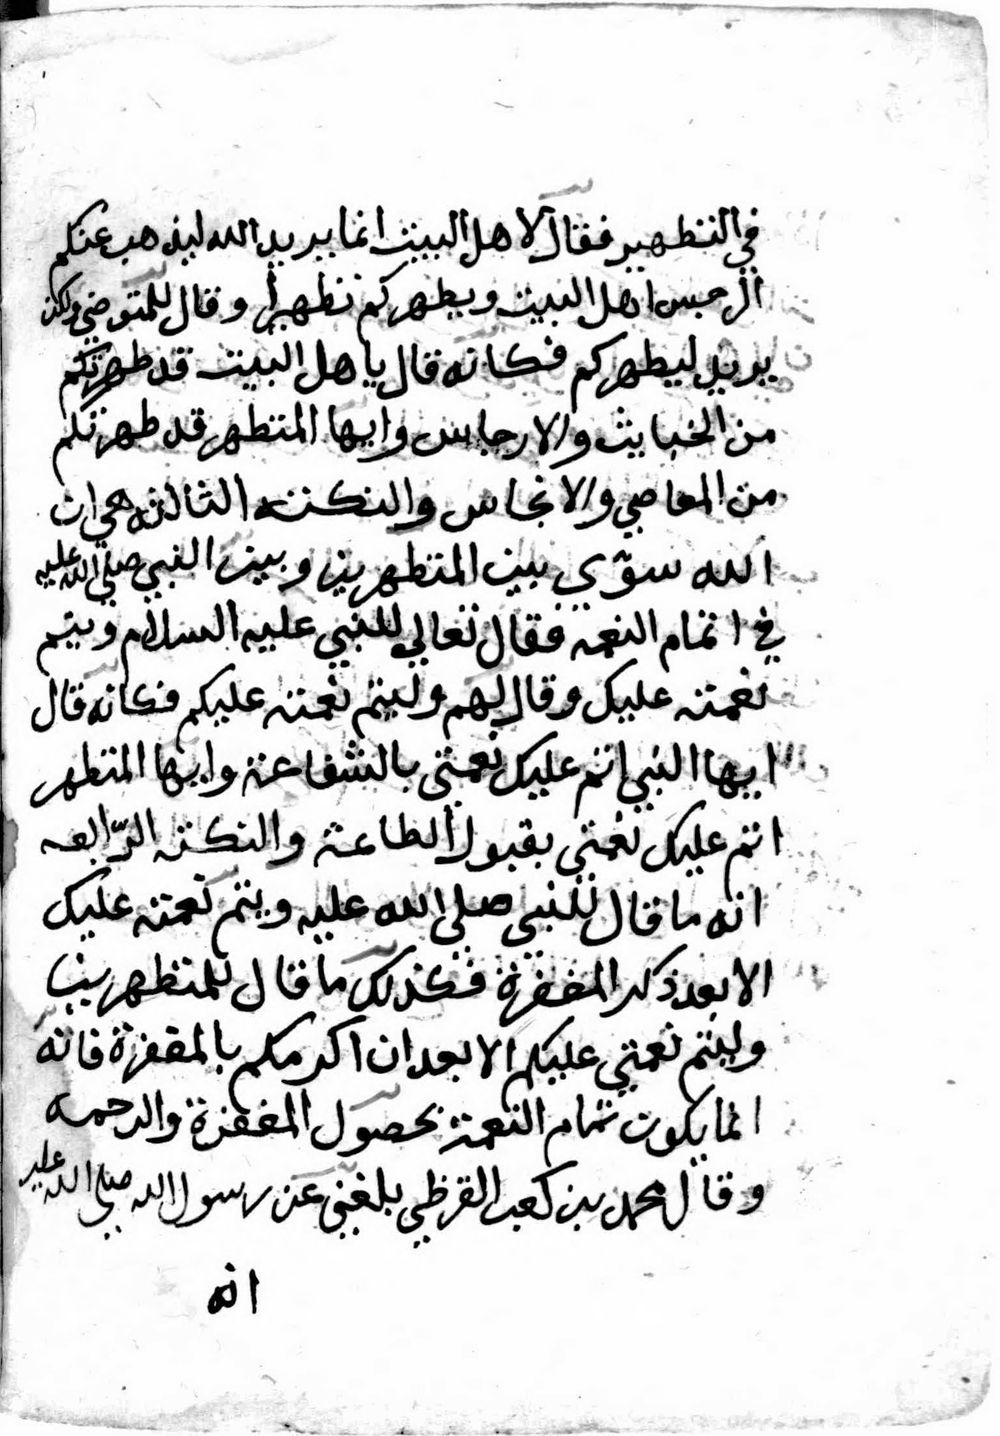 في التطهير فقال لاهل البيت انما يريد الله ليذهب عنكم
الرجس اهل البيت ويطهركم تطهيرا وقال للمتوضي ولكن
يريد ليطهركم فكانه قال يا هل البيت قد طهرتكم
من الخبايث والارجاس وايها المتطهر قد طهرتكم
من المعاصي والانجاس والنكتة الثالثه هي ان
الله سوّى بين المتطهرين وبين النبي صلى الله عليه
في اتمام النعمه فقال تعالى للنبي عليه السلام ويتم
نعمته عليك وقال لهم وليتم نعمته عليكم فكانه قال
ايها النبي اتم عليك نعمتي بالشفاعة وايها المتطهر
اتم عليك نعمتي بقبول الطاعة والنكتة الرّابعه
انه ما قال للنبي صلى الله عليه ويتم نعمته عليك
الا بعد ذكر المغفرة فكذلك ما قال للمتطهرين
وليتم نعمتي عليكم الا بعد ان اكرمكم بالمغفرة فانه
انما يكون تمام النعمة بحصول المغفرة والرحمه
وقال محمد بن كعب القرظي بلغني عن رسول الله صلى الله عليه
انه